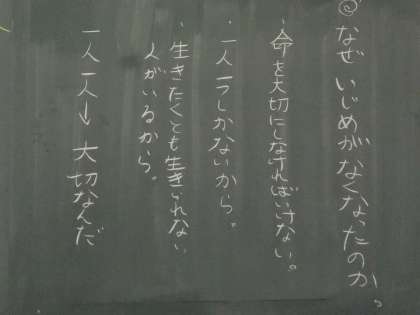 ◎なぜいじめがなくなったのか。
・命を大切にしなければいけない。
・一人一つしかないから。
・生きたくても生きれない
人がいるから。
一人一人→大切なんだ